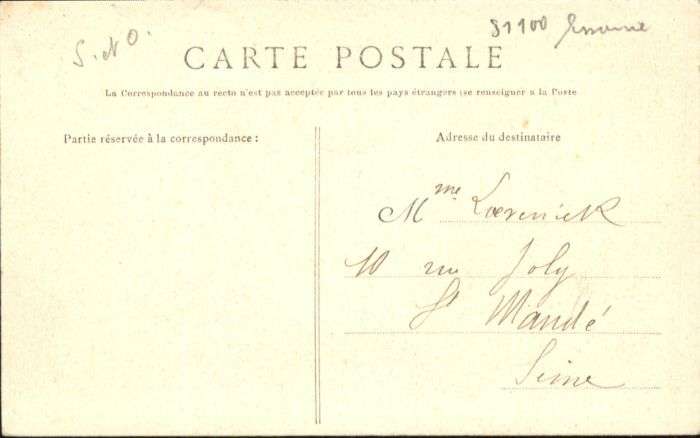 S. et O.
91100 Essonne
CARTE POSTALE
La Correspondance au recto n'est pas acceptée par tous les pays étrangers (se renseigner a la Poste
Partie réservée à la correspondance :
Adresse du destinataire
Mme
10 rue Joly
St Mandé
Seine